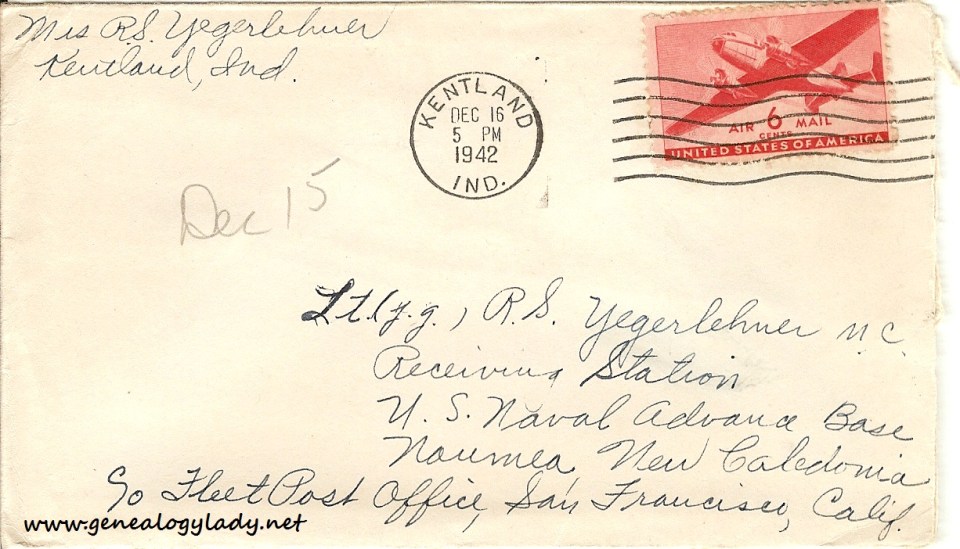 Mrs R.S. Yegerlehner
Kentland, Ind.
KENTLAND
DEC 16
5 PM
1942
IND.
AIR 6 MAIL
CENTS
UNITED STATES OF AMERICA
Dec 15
Lt.(j.g.) R.S. Yegerlehner M.C.
Receiving Station
U. S. Naval Advance Base
Noumea, New Caledonia
c/o Fleet Post Office, San Francisco, Calif.
www.genealogylady.net